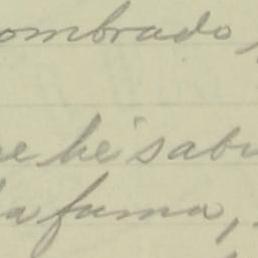 ombrado,
he sabi
la fama,